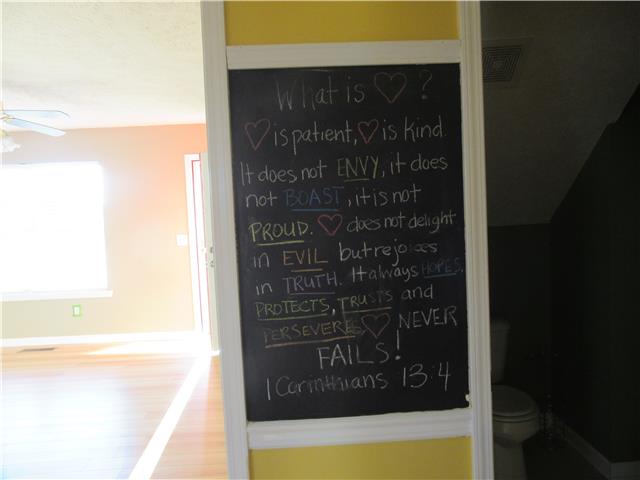 What is ♡ ?
♡ is patient, ♡ is kind.
It does not ENVY, it does
not BOAST, it is not
PROUD. ♡ does not delight
in EVIL but rejoices
in TRUTH. It always HOPES,
PROTECTS, TRUSTS and
PERSEVERES ♡ NEVER
FAILS!
1 Corinthians 13:4